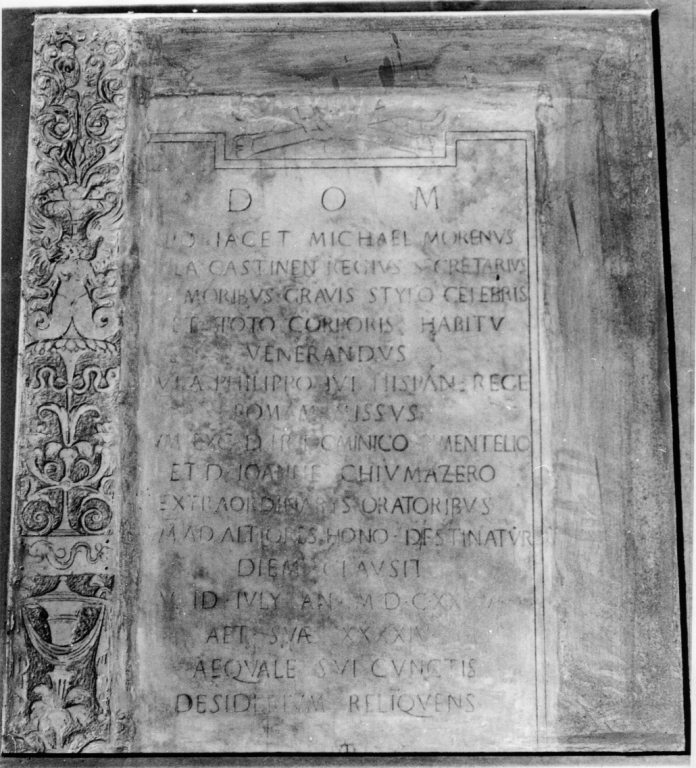 D O M
IACET MICHAEL MORENVS
CASTINEN REGIVS SECRETARIVS
MORIBVS GRAVIS STYLO CELEBRIS
CORPORIS HABITV
VENERANDVS
PHILIPPO IVI HISPAN REGE
ROMAM MISSVS
EXC D
ET D IOANNE CHIVMAZERO
EXTRAORDINARYS ORATORIBVS
AD ALTIORES HONO DESTINATVR
DIEM CLAVSIT
ID IVLY AN
AET SVÆ
AEQVALE SVI CVNCTIS
DESIDERIVM RELIQVENS